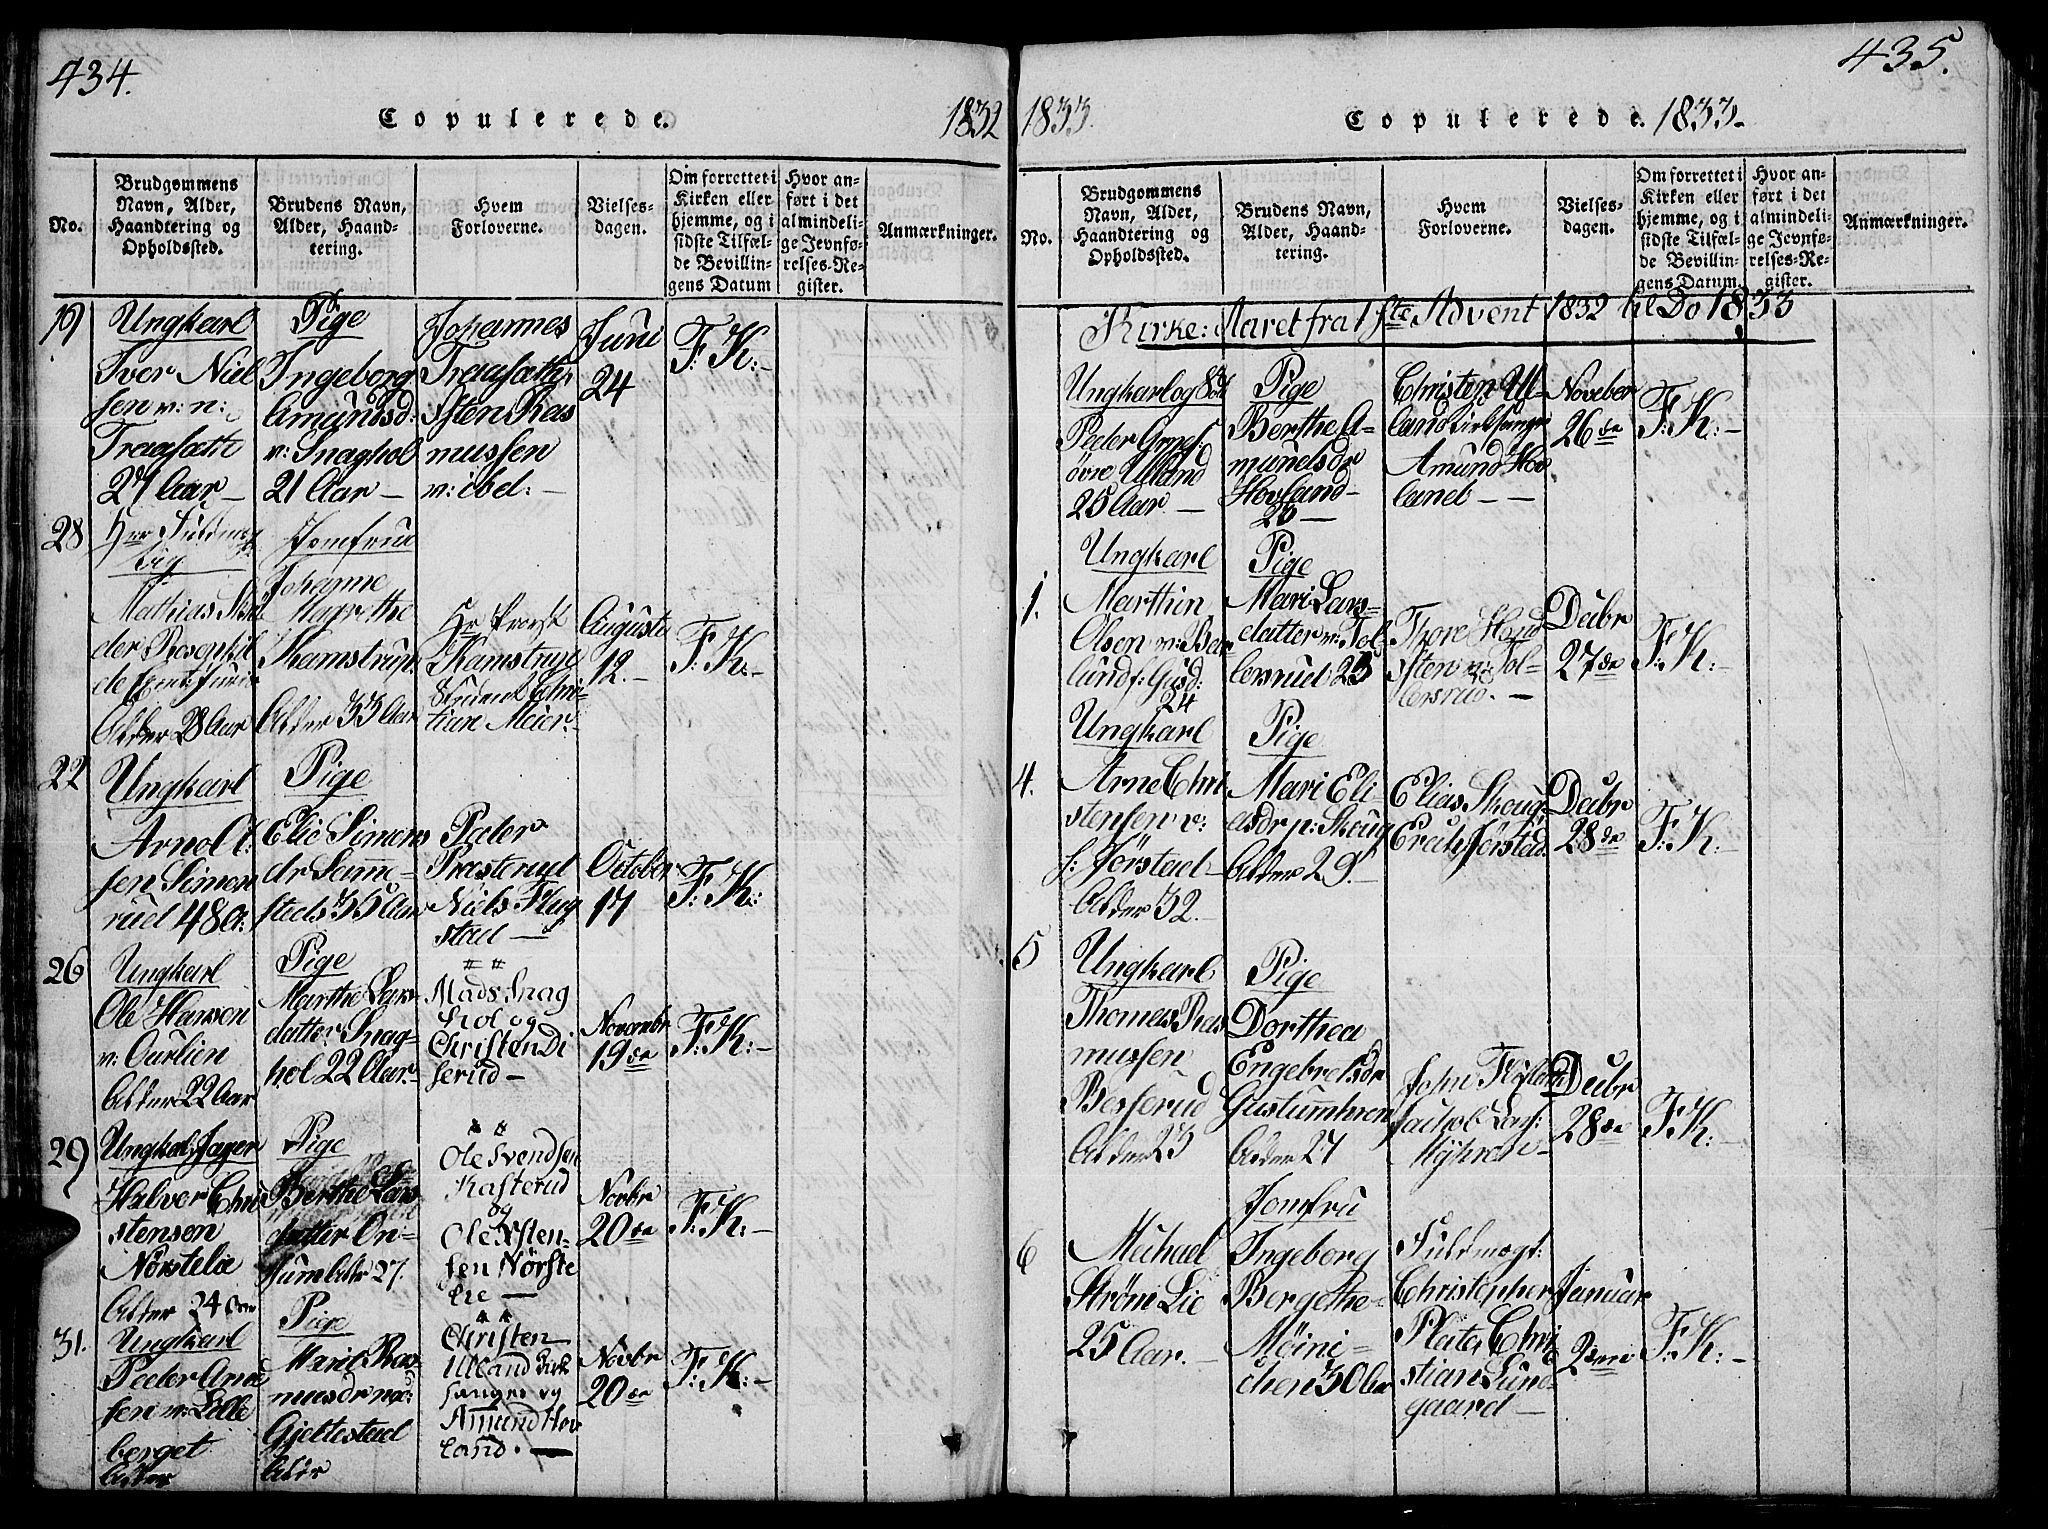 434.
Copulerede.
1832
No.
Brudgommens
Navn, Alder,
Haandtering og
Opholdssted.
Brudens Navn,
Alder, Haand-
tering.
Hvem
Forloverne.
Vielses-
dagen.
Om forrettet i
Kirken eller
hjemme, og i
sidste Tilfæl-
de Bevillin-
gens Datum
Hvor an-
ført i det
almindeli-
ge Jevnfø-
relses-Re-
gister.
Anmærkninger.
19
Ungkarl
Iver Niel
sen v: n:
27 Aar
Pige
Ingeborg
Amundsd:
v: Snaghol
21 Aar
Johannes
Sten Ras
mussen
v: ibd:
Juni
24
F: K:
28
Mathias
Alder 28 Aar
Jomfrue
Johanne
Magrethe
Kamstrup
Alder 33 Aar
Hr Provst
Kamstrup
Student Chri-
tian Meier
Auguste
12.
F: K:
22
Ungkarl
Arnol
sen Simen
rud 48 A:
Pige
Elie Simens
dr
35 Aar
Peder
Prasterud
Niels Flug
stad
October
17
F: K:
26
Ungkarl
Ole Hansen
v: Ourlien
Alder 22 Aar
Pige
Marthe Lars
datter Snag-
hol 22 Aar
Mads Snag
hol og
Christen Di
serud
Novembr
19de
F: K:
29
Ungkal Jæger
Halver Chri
stensen
Nørstelie
Alder 24
Pige
Berthe Lars
datter
27.
Ole Svendsen
Kasterud
og
Ole Østen-
sen Nørste
lie
Novbr
20de
F: K:
31.
Ungkarl
Peder
sen v: Lille
berget
Alder
Pige
Marit Ras
musdr
Gjeltestad
Aldr
Christen
Ulland Kirk
sanger og
Amund Hov
land.
Novbr
20de
F: K:
435.
1833.
Copulerede. 1833
No.
Brudgommens
Navn, Alder,
Haandtering og
Opholdssted.
Brudens Navn,
Alder, Haand-
tering.
Hvem
Forloverne.
Vielses-
dagen.
Om forrettet i
Kirken eller
hjemme, og i
sidste Tilfæl-
de Bevillin-
gens Datum.
Hvor an-
ført i det
almindeli-
ge Jevnfø-
relses-Re-
gister.
Anmærkninger.
Kirke: Aaret fra 1ste Advent 1832 til Do 1833
Ungkarl og
Peder Arnes:
øvre Ulland
25 Aar.
Pige
Berthe A-
mundsdr
Hovland
26
Christen Ul-
land Kirksanger
Amund Hov
land
Noveber
26de
F: K:
1.
Ungkarl
Marthin
Olsen v:
lund f: Gusd:
24
Pige
Mari Lars-
datter v: Tol-
lersrud 23
Thore
sten v: Tol-
lersrud.
Decbr
27de
F: K:
4.
Ungkarl
Arne Chri
stensen v:
f: Jørstad
Alder 32.
Pige
Mari Eli-
asdr p: Skoug
Alder 29.
Elias Skoug
Erich Jørstad
Decbr
28de
F: K:
5
Ungkarl
Thomas Ras
mussen
Besserud
Alder 23
Pige
Dorthea
Engebretsdr
Alder 27
John
Jackob Lars:
Myhren
Decbr
28de
F: K:
6
Michael
Strøm Lie
25 Aar.
Jomfru
Ingeborg
Bergethe
Møini-
chen 30 Aar
Fuldmægt:
Christopher
Plate Chri
stian Lund-
gaard
Januar
2den
F: K: